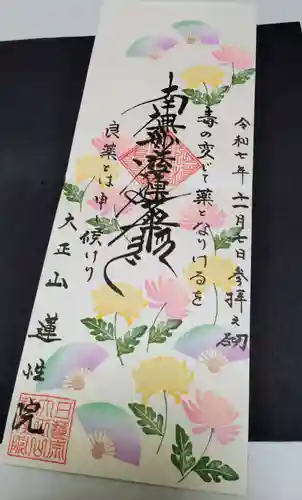 令和七年十一月七日参拝之砌
毒の変じて薬となりけるを
南無妙法蓮華経
良薬とは申し候けり
大正山 蓮性院